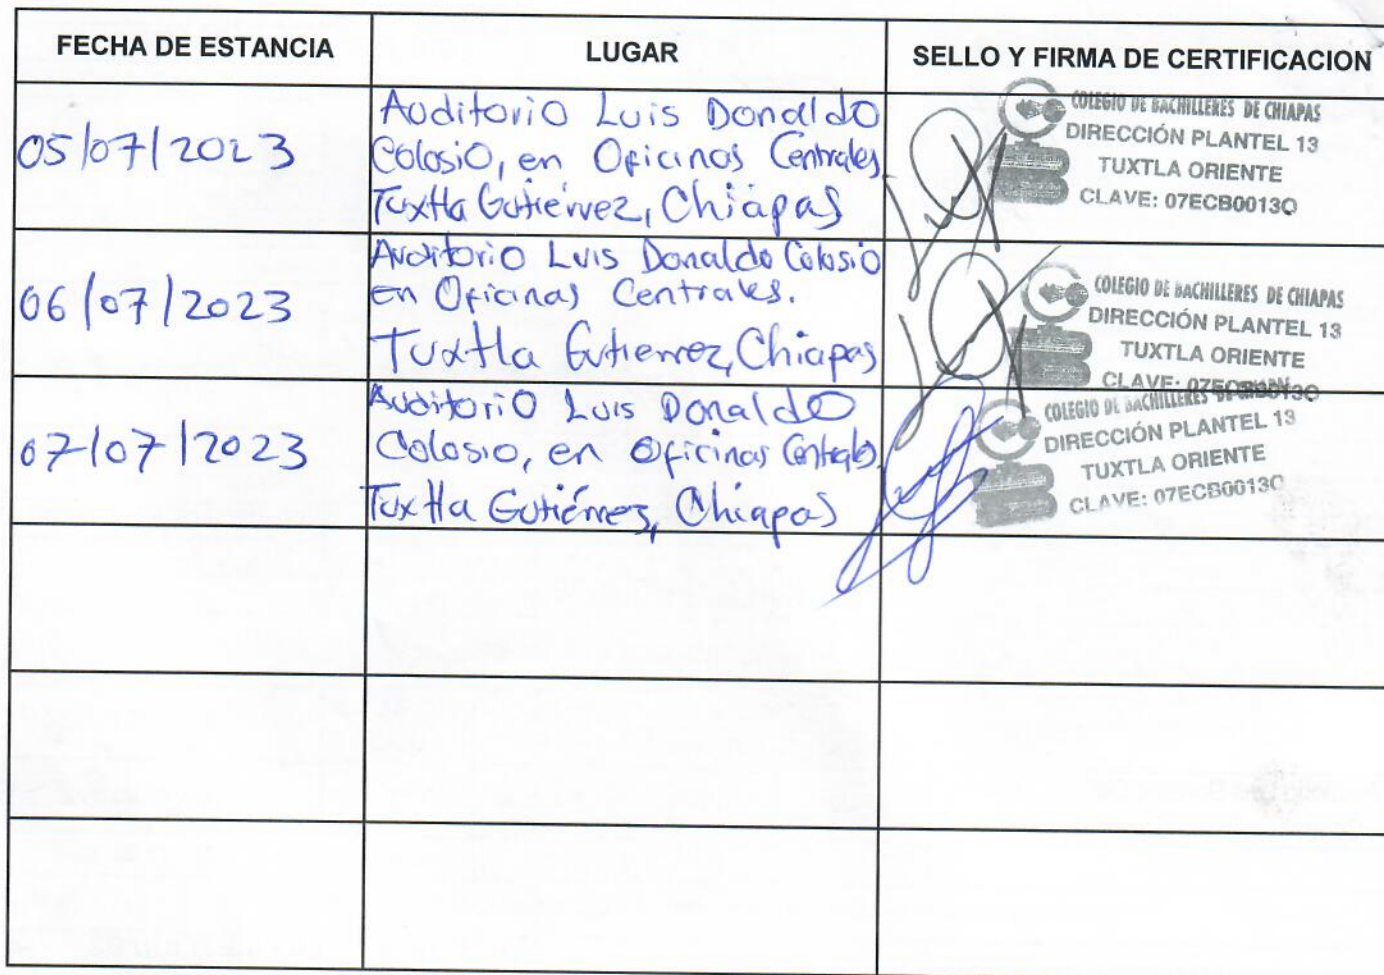 FECHA DE ESTANCIA
LUGAR
SELLO Y FIRMA DE CERTIFICACION
05/07/2023
Auditorio Luis Donaldo
Colosio, en Oficinas Centrales
Tuxtla Gutiérrez, Chiapas
COLEGIO DE BACHILLERES DE CHIAPAS
DIRECCIÓN PLANTEL 13
TUXTLA ORIENTE
CLAVE: 07ECB0013O
06/07/2023
Auditorio Luis Donaldo Colosio
en Oficinas Centrales.
Tuxtla Gutierrez, Chiapas
COLEGIO DE BACHILLERES DE CHIAPAS
DIRECCIÓN PLANTEL 13
TUXTLA ORIENTE
CLAVE: 07ECB0013O
07/07/2023
Auditorio Luis Donaldo
Colosio, en Oficinas Centrales
Tuxtla Gutiérrez, Chiapas
COLEGIO DE BACHILLERES DE CHIAPAS
DIRECCIÓN PLANTEL 13
TUXTLA ORIENTE
CLAVE: 07ECB0013O